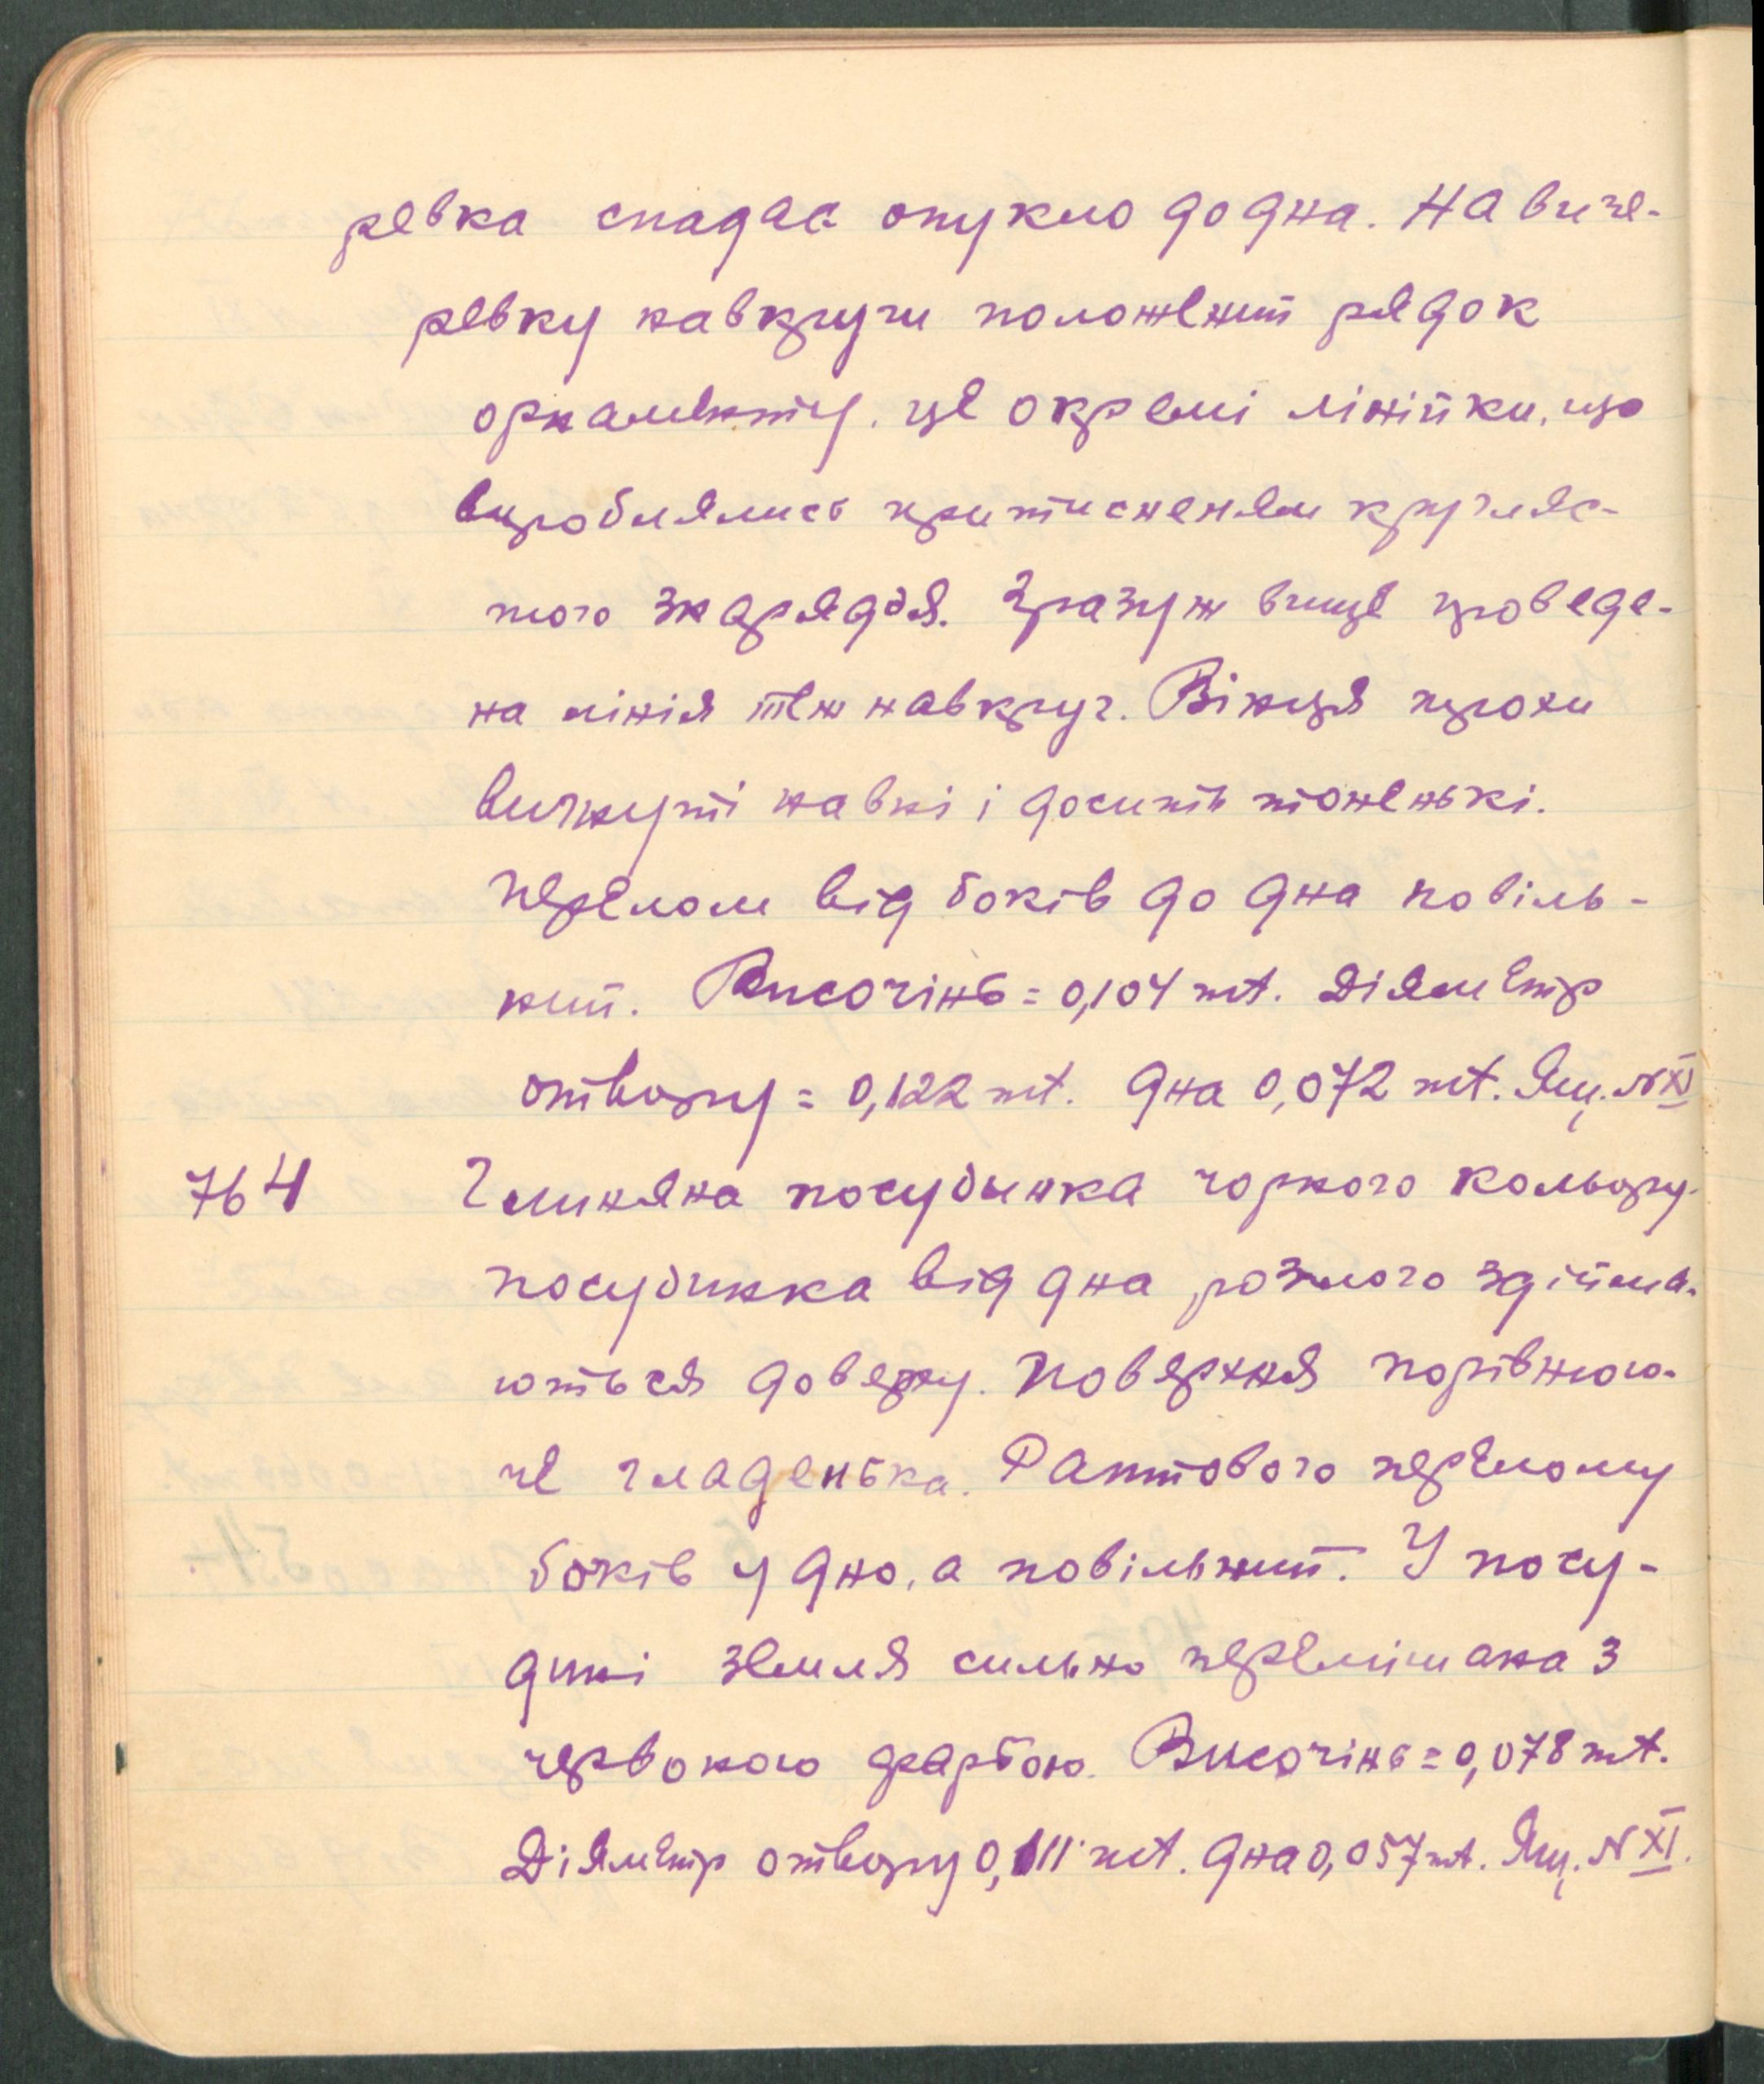 ревка спадає опукло до дна. На виче-
ревку навкруги положений рядок
орнаменту. це окремі лінійки, що
вироблялись притисненям кругляс-
того знаряддя. Зразу ж вище проведе-
на лінія теж навкруг. Вінця трохи
вигнуті навні і досить тоненькі.
Перелом від боків до дна повіль-
ний. Височінь = 0,104 mt. Діяметр
отвору = 0,122 mt. Дна 0,072 mt. Ящ. N XI
764 Глиняна посудинка чорного кольору.
Посудинка від дна розлого здійма-
ються доверху. Поверхня порівнюю-
че гладенька. Раптового перелому
боків у дно, а повільний. У посу-
дині земля сильно перемішана з
червоною фарбою. Височінь = 0,078 mt.
Діяметр отвору 0,111 mt. Дна 0,057 mt. Ящ. N XI.